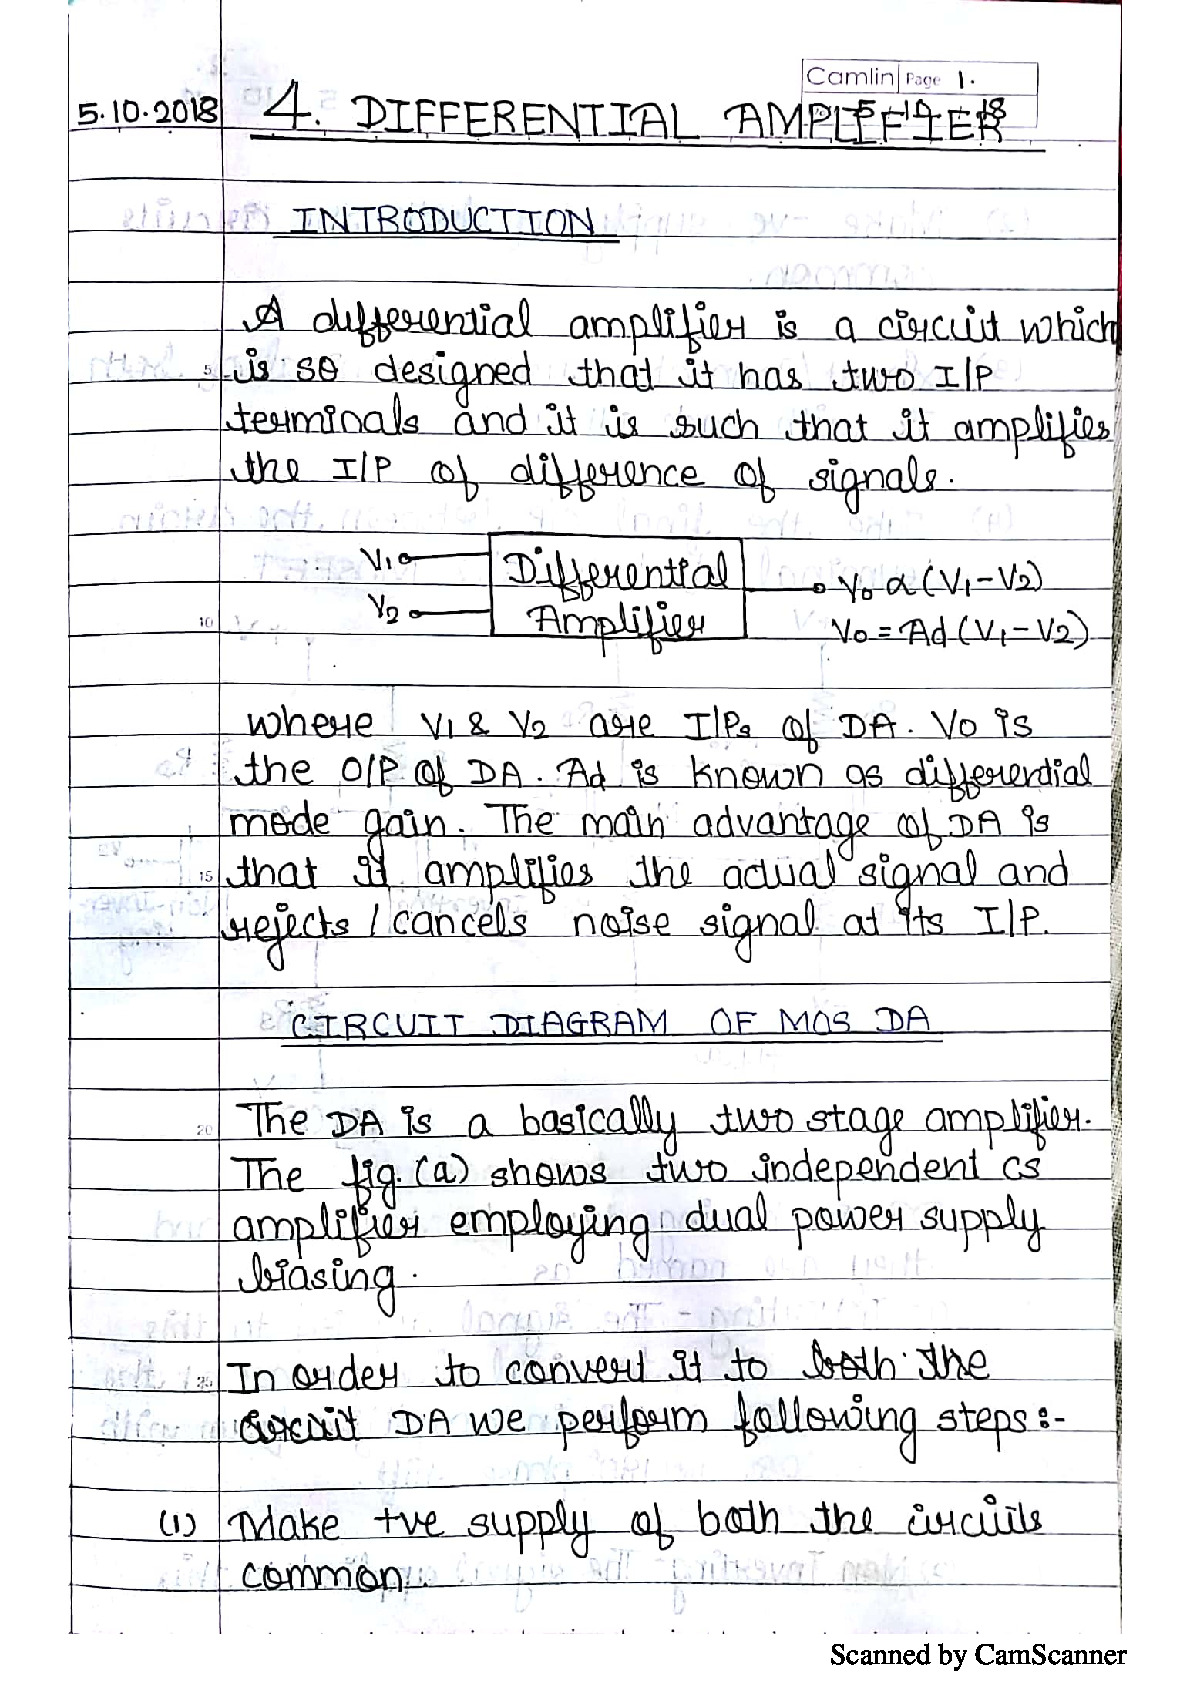 Camlin Page 1.
5.10.2018 4. DIFFERENTIAL AMPLIFIER
5 10 18
INTRODUCTION
A differential amplifier is a circuit which
5 is so designed that it has two I/P
terminals and it is such that it amplifies
the I/P of difference of signals.
V1 Differential Vo α (V1-V2)
V2 Amplifier Vo = Ad (V1-V2)
10
where V1 & V2 are I/Ps of DA. Vo is
the O/P of DA. Ad is known as differential
mode gain. The main advantage of DA is
15 that it amplifies the actual signal and
rejects / cancels noise signal at its I/P.
CIRCUIT DIAGRAM OF MOS DA
20 The DA is a basically two stage amplifier.
The fig. (a) shows two independent CS
amplifier employing dual power supply
biasing.
25 In order to convert it to both the
circuit DA we perform following steps :-
(1) Make +ve supply of both the circuits
common.
Scanned by CamScanner